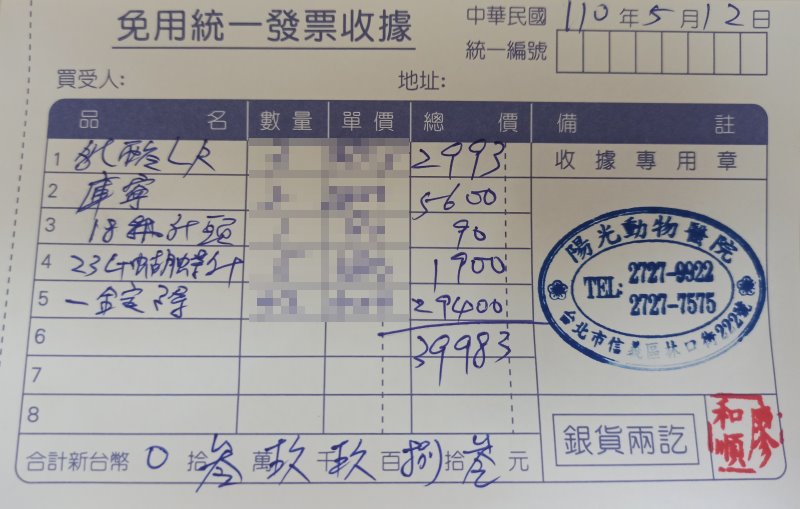 免用統一發票收據
中華民國 110 年 5 月 12 日
統一編號
買受人:
地址:
品 名 數量 單價 總 價 備 註
1 乳酸LR 2993
收據專用章
2 庫寧 5600
3 18號針頭 90
4 23G蝴蝶針 1900
5 一錠除 29400
39983
6
7
8
陽光動物醫院
TEL: 2727-9922
2727-7575
台北市信義區林口街222號
銀貨兩訖
廖和順
合計新台幣 0 拾 叁 萬 玖 千 玖 百 捌 拾 叁 元